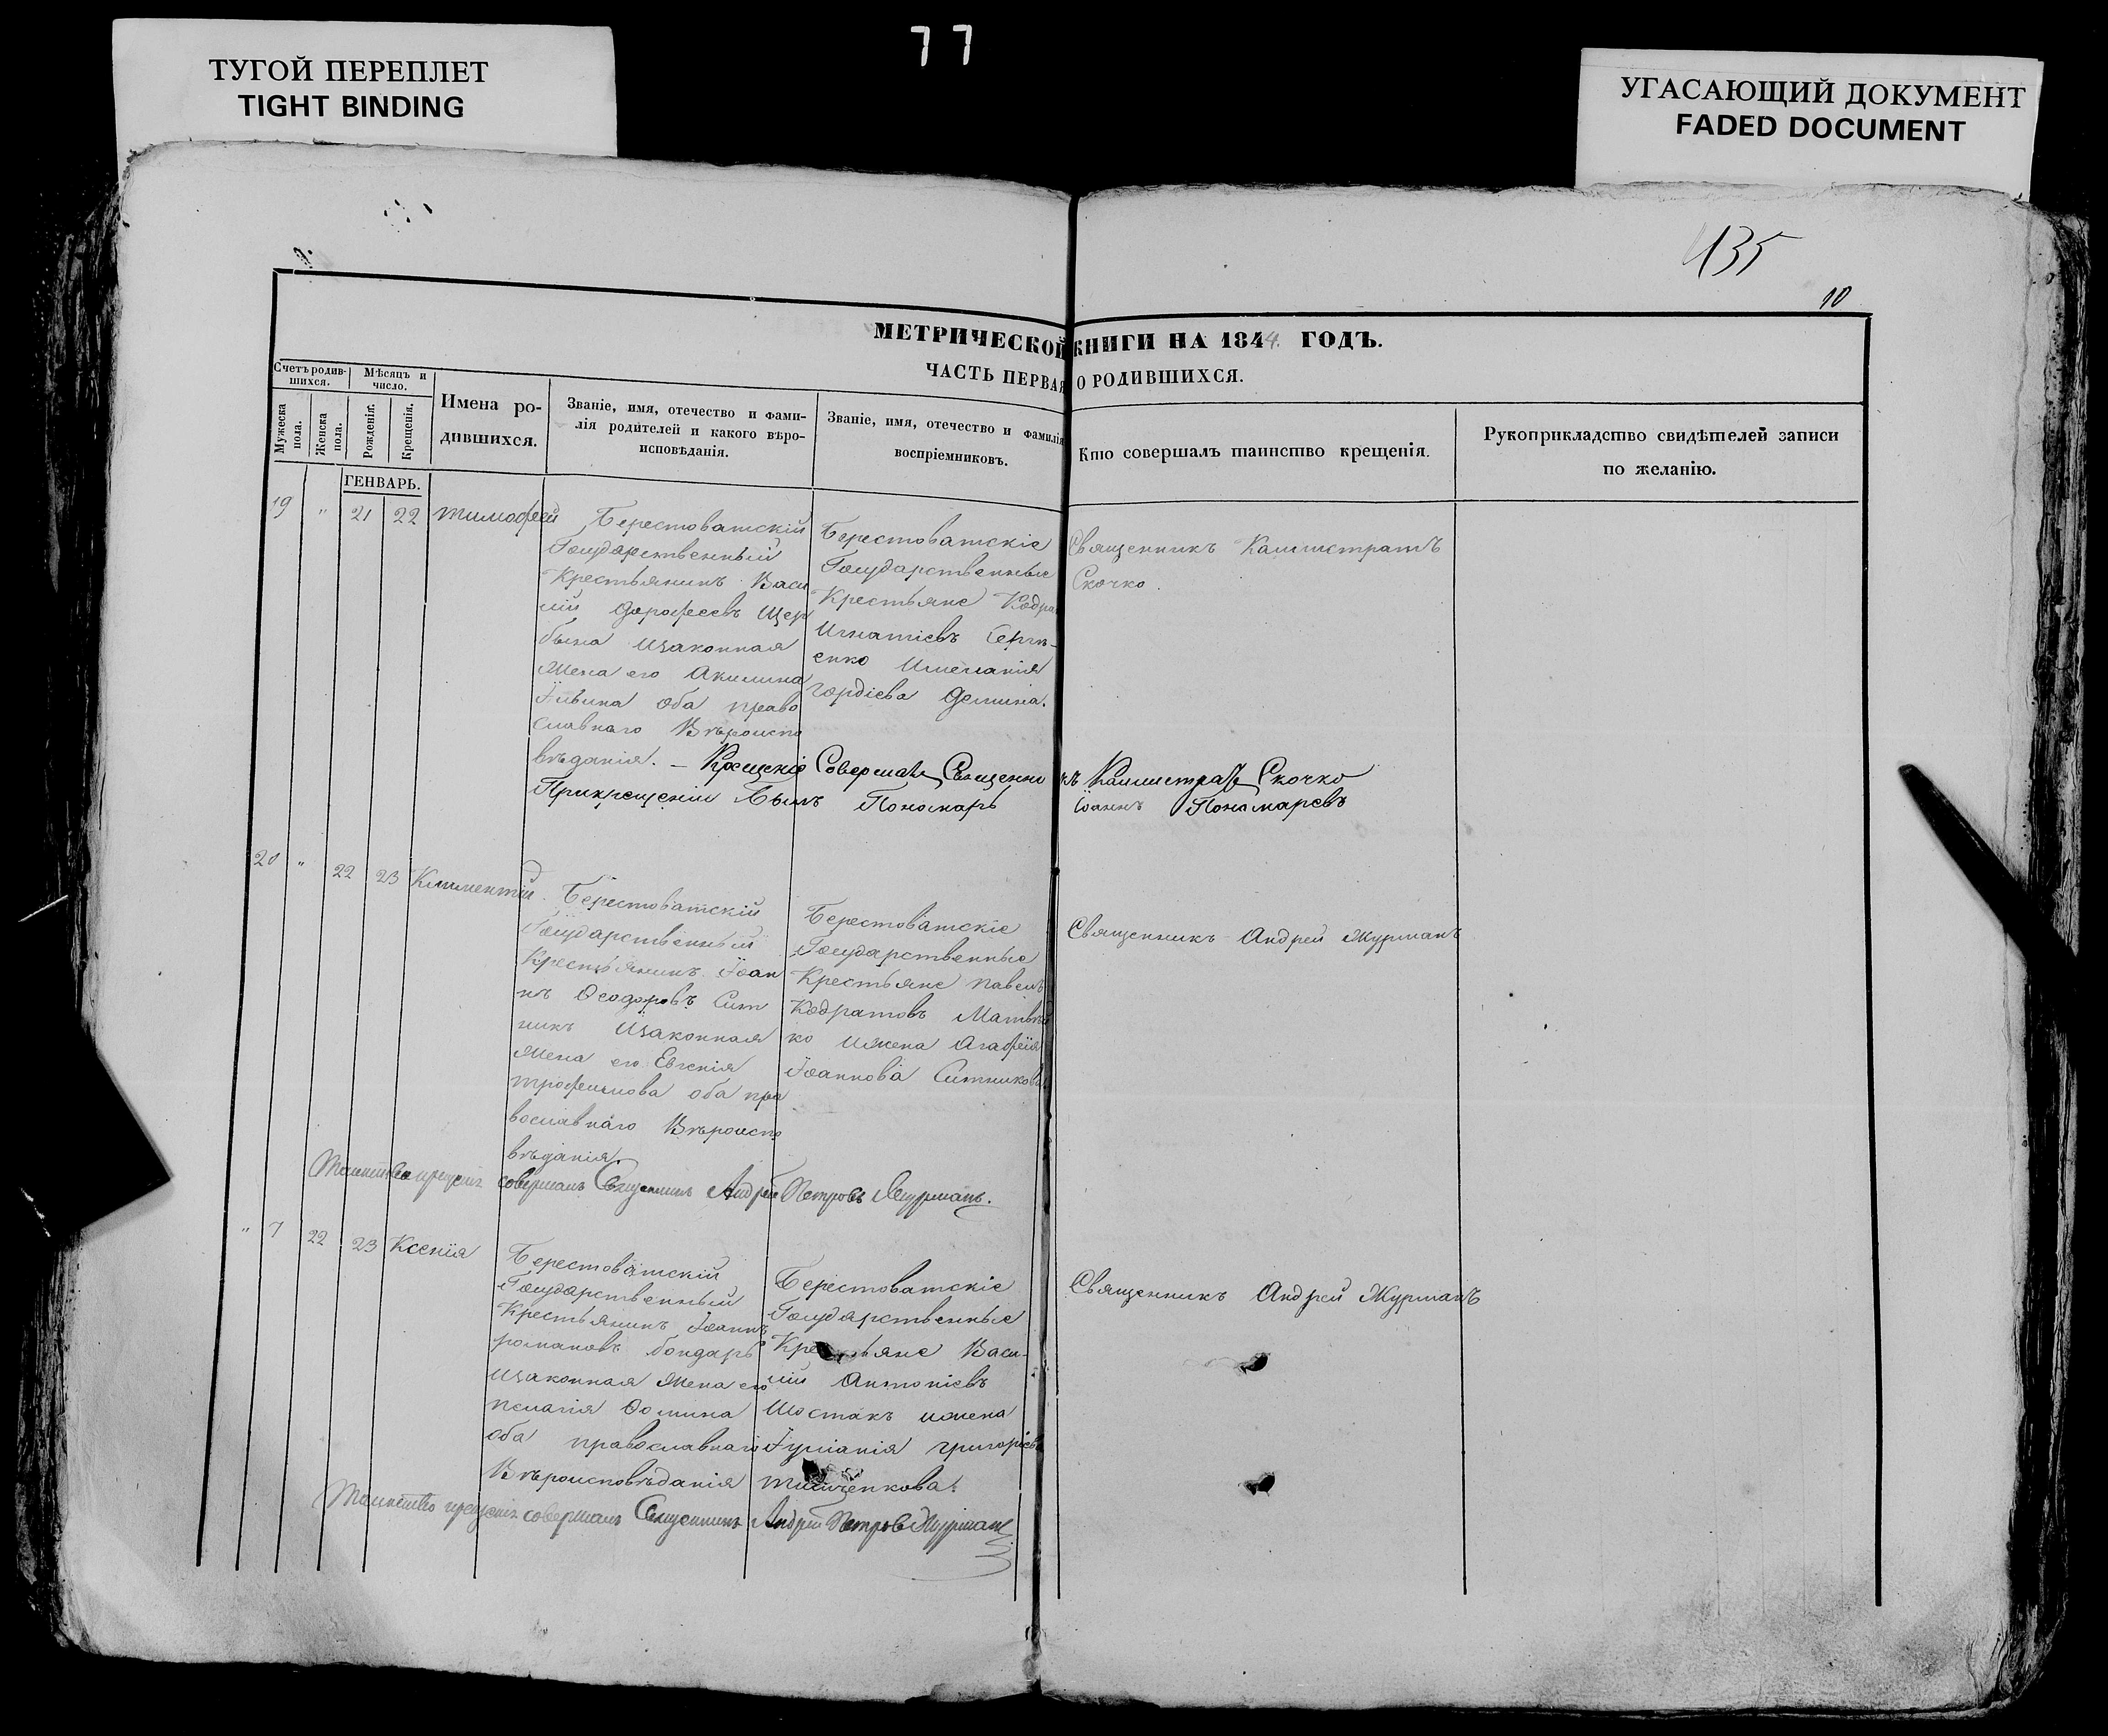 77
ТУГОЙ ПЕРЕПЛЕТ
TIGHT BINDING
УГАСАЮЩИЙ ДОКУМЕНТ
FADED DOCUMENT
435
10
МЕТРИЧЕСКОЙ КНИГИ НА 1844 ГОДЪ.
ЧАСТЬ ПЕРВАЯ О РОДИВШИХСЯ.
Счетъ родив-
шихся.
Мѣсяцъ и
число.
Мужеска
пола.
Женска
пола.
Рожденія.
Крещенія.
Имена ро-
дившихся.
Званіе, имя, отечество и фами-
лія родителей и какого вѣро-
исповѣданія.
Званіе, имя, отечество и фамилія
воспріемниковъ.
Кто совершалъ таинство крещенія.
Рукоприкладство свидѣтелей записи
по желанію.
ГЕНВАРЬ.
19 " 21 22 Тимофей
Берестоватскій
Государственный
Крестьянинъ Васи
лій Дорофеевъ Щер
бына Изаконная
Жена его Акилина
Їльина оба право
славнаго Вѣроиспо
вѣданія.
Берестоватскіе
Государственные
Крестьяне Кодра
Игнатіевъ Серги-
енко
Гордіева Демина.
Священникъ Каллистратъ
Скочко.
– Крещеніе Совершалъ Священникъ Каллистратъ Скочко
Прикрещеніи Былъ Пономарь Їоаннъ Пономаревъ
20 " 22 23 Климентій
Берестоватскій
Государственный
Крестьянинъ Їоан
нъ Ѳеодоровъ Сит
никъ Изаконная
Жена его Евгенія
Трофимова оба пра
вославнаго Вѣроиспо
вѣданія.
Берестоватскіе
Государственные
Крестьяне Павелъ
Кодратовъ Матвѣе
ко Ижена Агафїя
Їоаннова Ситникова
Священникъ Андрей Журманъ
Таинство крещенія совершалъ Священникъ Андрей Петровъ Журманъ.
" 7 22 23 Ксенїя
Берестоватскій
Государственный
Крестьянинъ Їоаннъ
романовъ бондарь
Изаконная Жена его
пелагія Ѳомина
оба православнаго
Вѣроисповѣданія
Берестоватскіе
Государственные
Крестьяне Васи-
лій Антоніевъ
Шостакъ ижена
Їуліанія григоріева
Священникъ Андрей Журманъ
Таинство крещенія совершалъ Священникъ Андрей Петровъ Журманъ